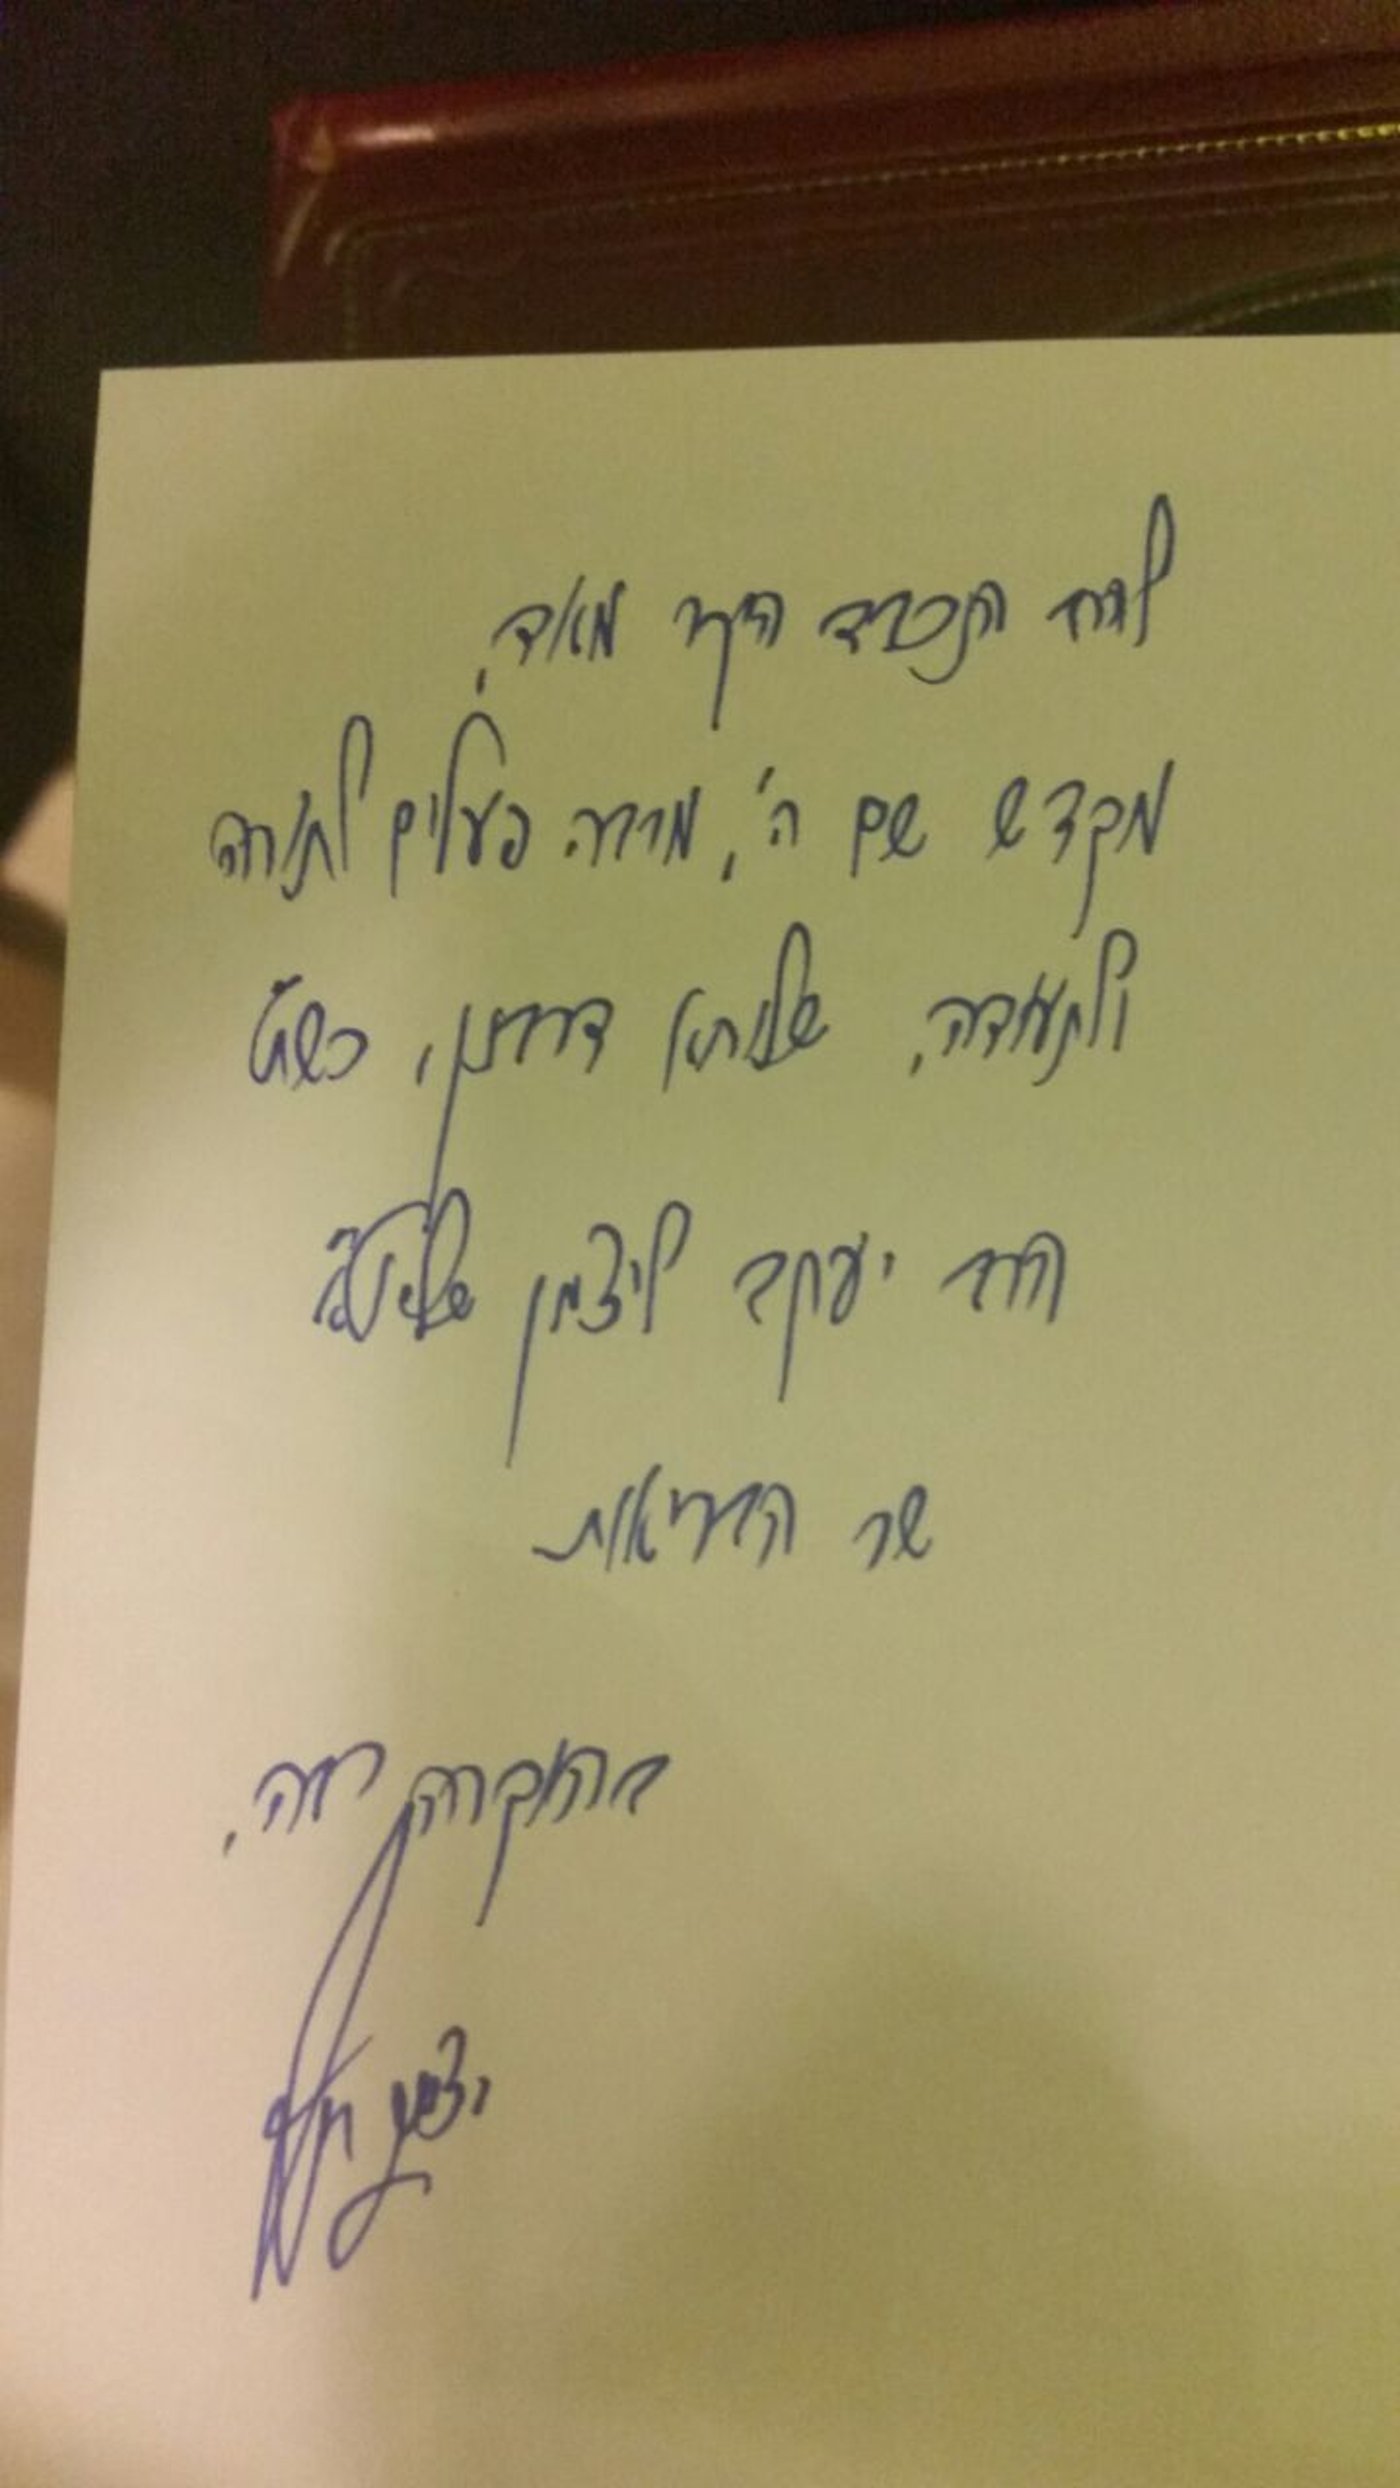 לרב הנכבד היקר מאד,
מקדש שם ה', מרבה פעלים לתורה
ולתעודה, שלוחא דרבנן, כש"ת
הרב יעקב ליצמן שליט"א
שר הבריאות
בהוקרה רבה,